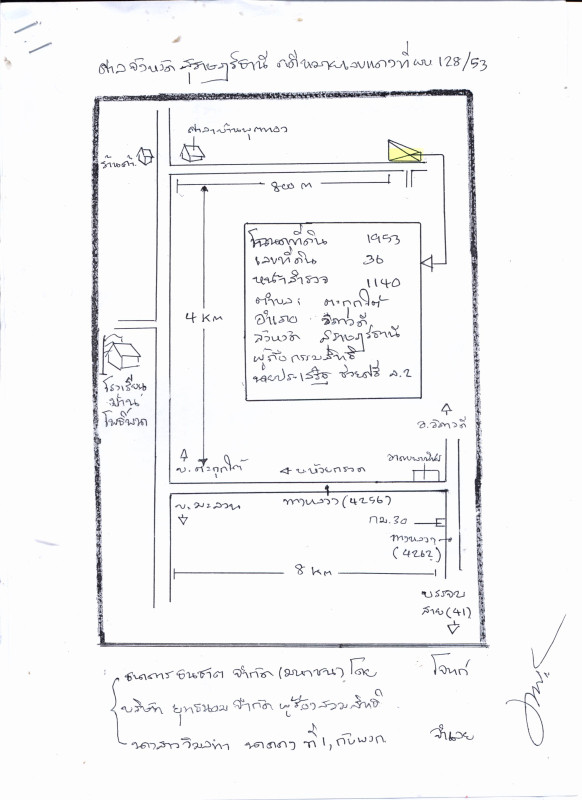 ศาลจังหวัดสุราษฎร์ธานี คดีหมายเลขแดงที่ ผบ 128/53
ศาลาบ้านพุดทอง
ร้านค้า
800 m
โฉนดที่ดิน 1953
เลขที่ดิน 36
หน้าสำรวจ 1140
ตำบล ตะกุกใต้
อำเภอ วิภาวดี
จังหวัด สุราษฎร์ธานี
ผู้ถือกรรมสิทธิ์
นายประเสริฐ ช่วยศรี ล.2
4 Km
โรงเรียน
บ้าน
อ.วิภาวดี
บ.ตะกุกใต้
บ.ห้วยกรวด
ทางหลวง (4256)
กม.30
ทางหลวง
(4262)
8 Km
บรรจบ
สาย (41)
ธนาคารธนชาต จำกัด (มหาชน) โดย โจทก์
บริษัท จำกัด ผู้ร้องสวมสิทธิ์
นางสาว ที่ 1, กับพวก จำเลย